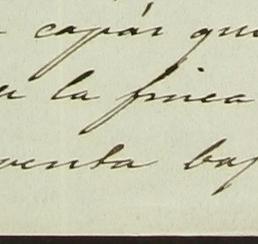 capás qu
la finca
venta baj